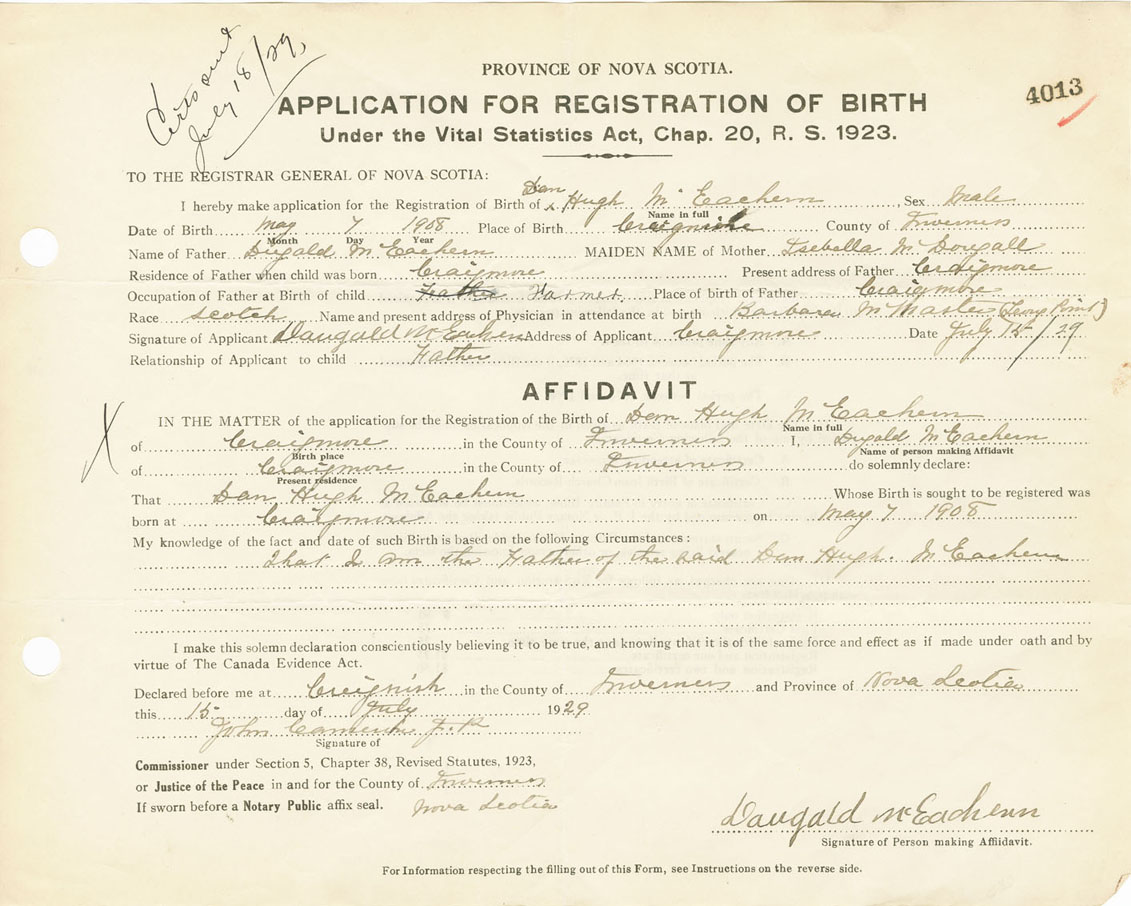 Certs sent
July 18/29,
PROVINCE OF NOVA SCOTIA.
4013
APPLICATION FOR REGISTRATION OF BIRTH
Under the Vital Statistics Act, Chap. 20, R. S. 1923.
TO THE REGISTRAR GENERAL OF NOVA SCOTIA:
Dan
I hereby make application for the Registration of Birth of Hugh McEachern Sex Male
Name in full
Date of Birth May 7 1908 Place of Birth Craignish County of Inverness
Month Day Year
Name of Father Dugald McEachern MAIDEN NAME of Mother Isebella McDougall
Residence of Father when child was born Craigmore Present address of Father Craigmore
Occupation of Father at Birth of child Father Farmer Place of birth of Father Craigmore
Race Scotch Name and present address of Physician in attendance at birth Barbara McMaster (Long Point)
Signature of Applicant Daugald McEachern Address of Applicant Craigmore Date July 15/29
Relationship of Applicant to child Father
AFFIDAVIT
X
IN THE MATTER of the application for the Registration of the Birth of Dan Hugh McEachern
Name in full
of Craigmore in the County of Inverness I, Dugald McEachern
Birth place Name of person making Affidavit
of Craigmore in the County of Inverness do solemnly declare:
Present residence
That Dan Hugh McEachern Whose Birth is sought to be registered was
born at Craigmore on May 7 1908
My knowledge of the fact and date of such Birth is based on the following Circumstances:
That I am the Father of the said Dan Hugh. McEachern
I make this solemn declaration conscientiously believing it to be true, and knowing that it is of the same force and effect as if made under oath and by
virtue of The Canada Evidence Act.
Declared before me at Craignish in the County of Inverness and Province of Nova Scotia
this 15 day of July 1929
John J.P.
Signature of
Commissioner under Section 5, Chapter 38, Revised Statutes, 1923,
or Justice of the Peace in and for the County of Inverness
If sworn before a Notary Public affix seal. Nova Scotia
Daugald McEachern
Signature of Person making Affidavit.
For Information respecting the filling out of this Form, see Instructions on the reverse side.